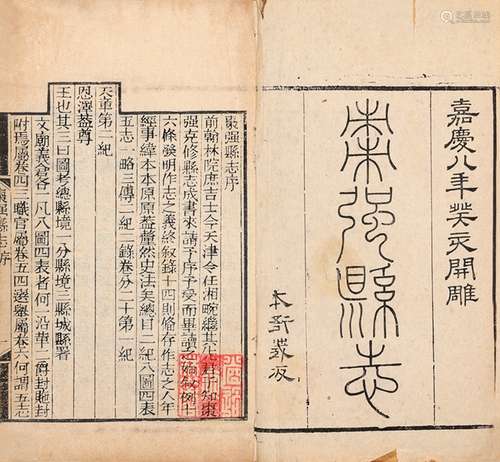 嘉慶八年癸亥開雕
棗强縣志
本衙藏板
棗强縣志序
前翰林院庶吉士今天津令任湘畹繼其 君子知棗
强克修縣志成書來請予序予受而畢讀之始敘例十
六條發明作志之義終敘錄十四則條存作志之人年
經事緯本本原原蓋釐然史法矣總目二紀八圖四表
五志一略三傳二紀一錄卷分二十第一紀
天章第二紀
恩澤蓋尊
王也其三曰圖考總縣境一分縣境三縣城縣署
文廟義倉各一凡八圖四表者何一沿革二爵封貤封
附焉屬卷四三職官屬卷五四選舉屬卷六何謂五志
棗强縣志序